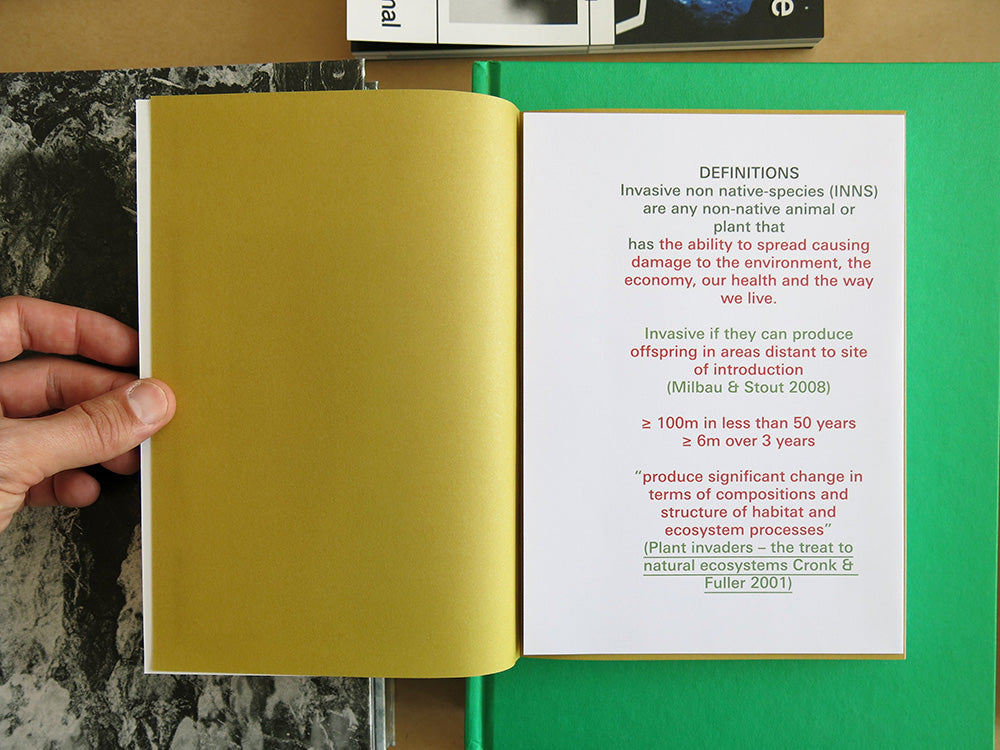 nal
e
DEFINITIONS
Invasive non native-species (INNS)
are any non-native animal or
plant that
has the ability to spread causing
damage to the environment, the
economy, our health and the way
we live.
Invasive if they can produce
offspring in areas distant to site
of introduction
(Milbau & Stout 2008)
≥ 100m in less than 50 years
≥ 6m over 3 years
“produce significant change in
terms of compositions and
structure of habitat and
ecosystem processes”
(Plant invaders – the treat to
natural ecosystems Cronk &
Fuller 2001)